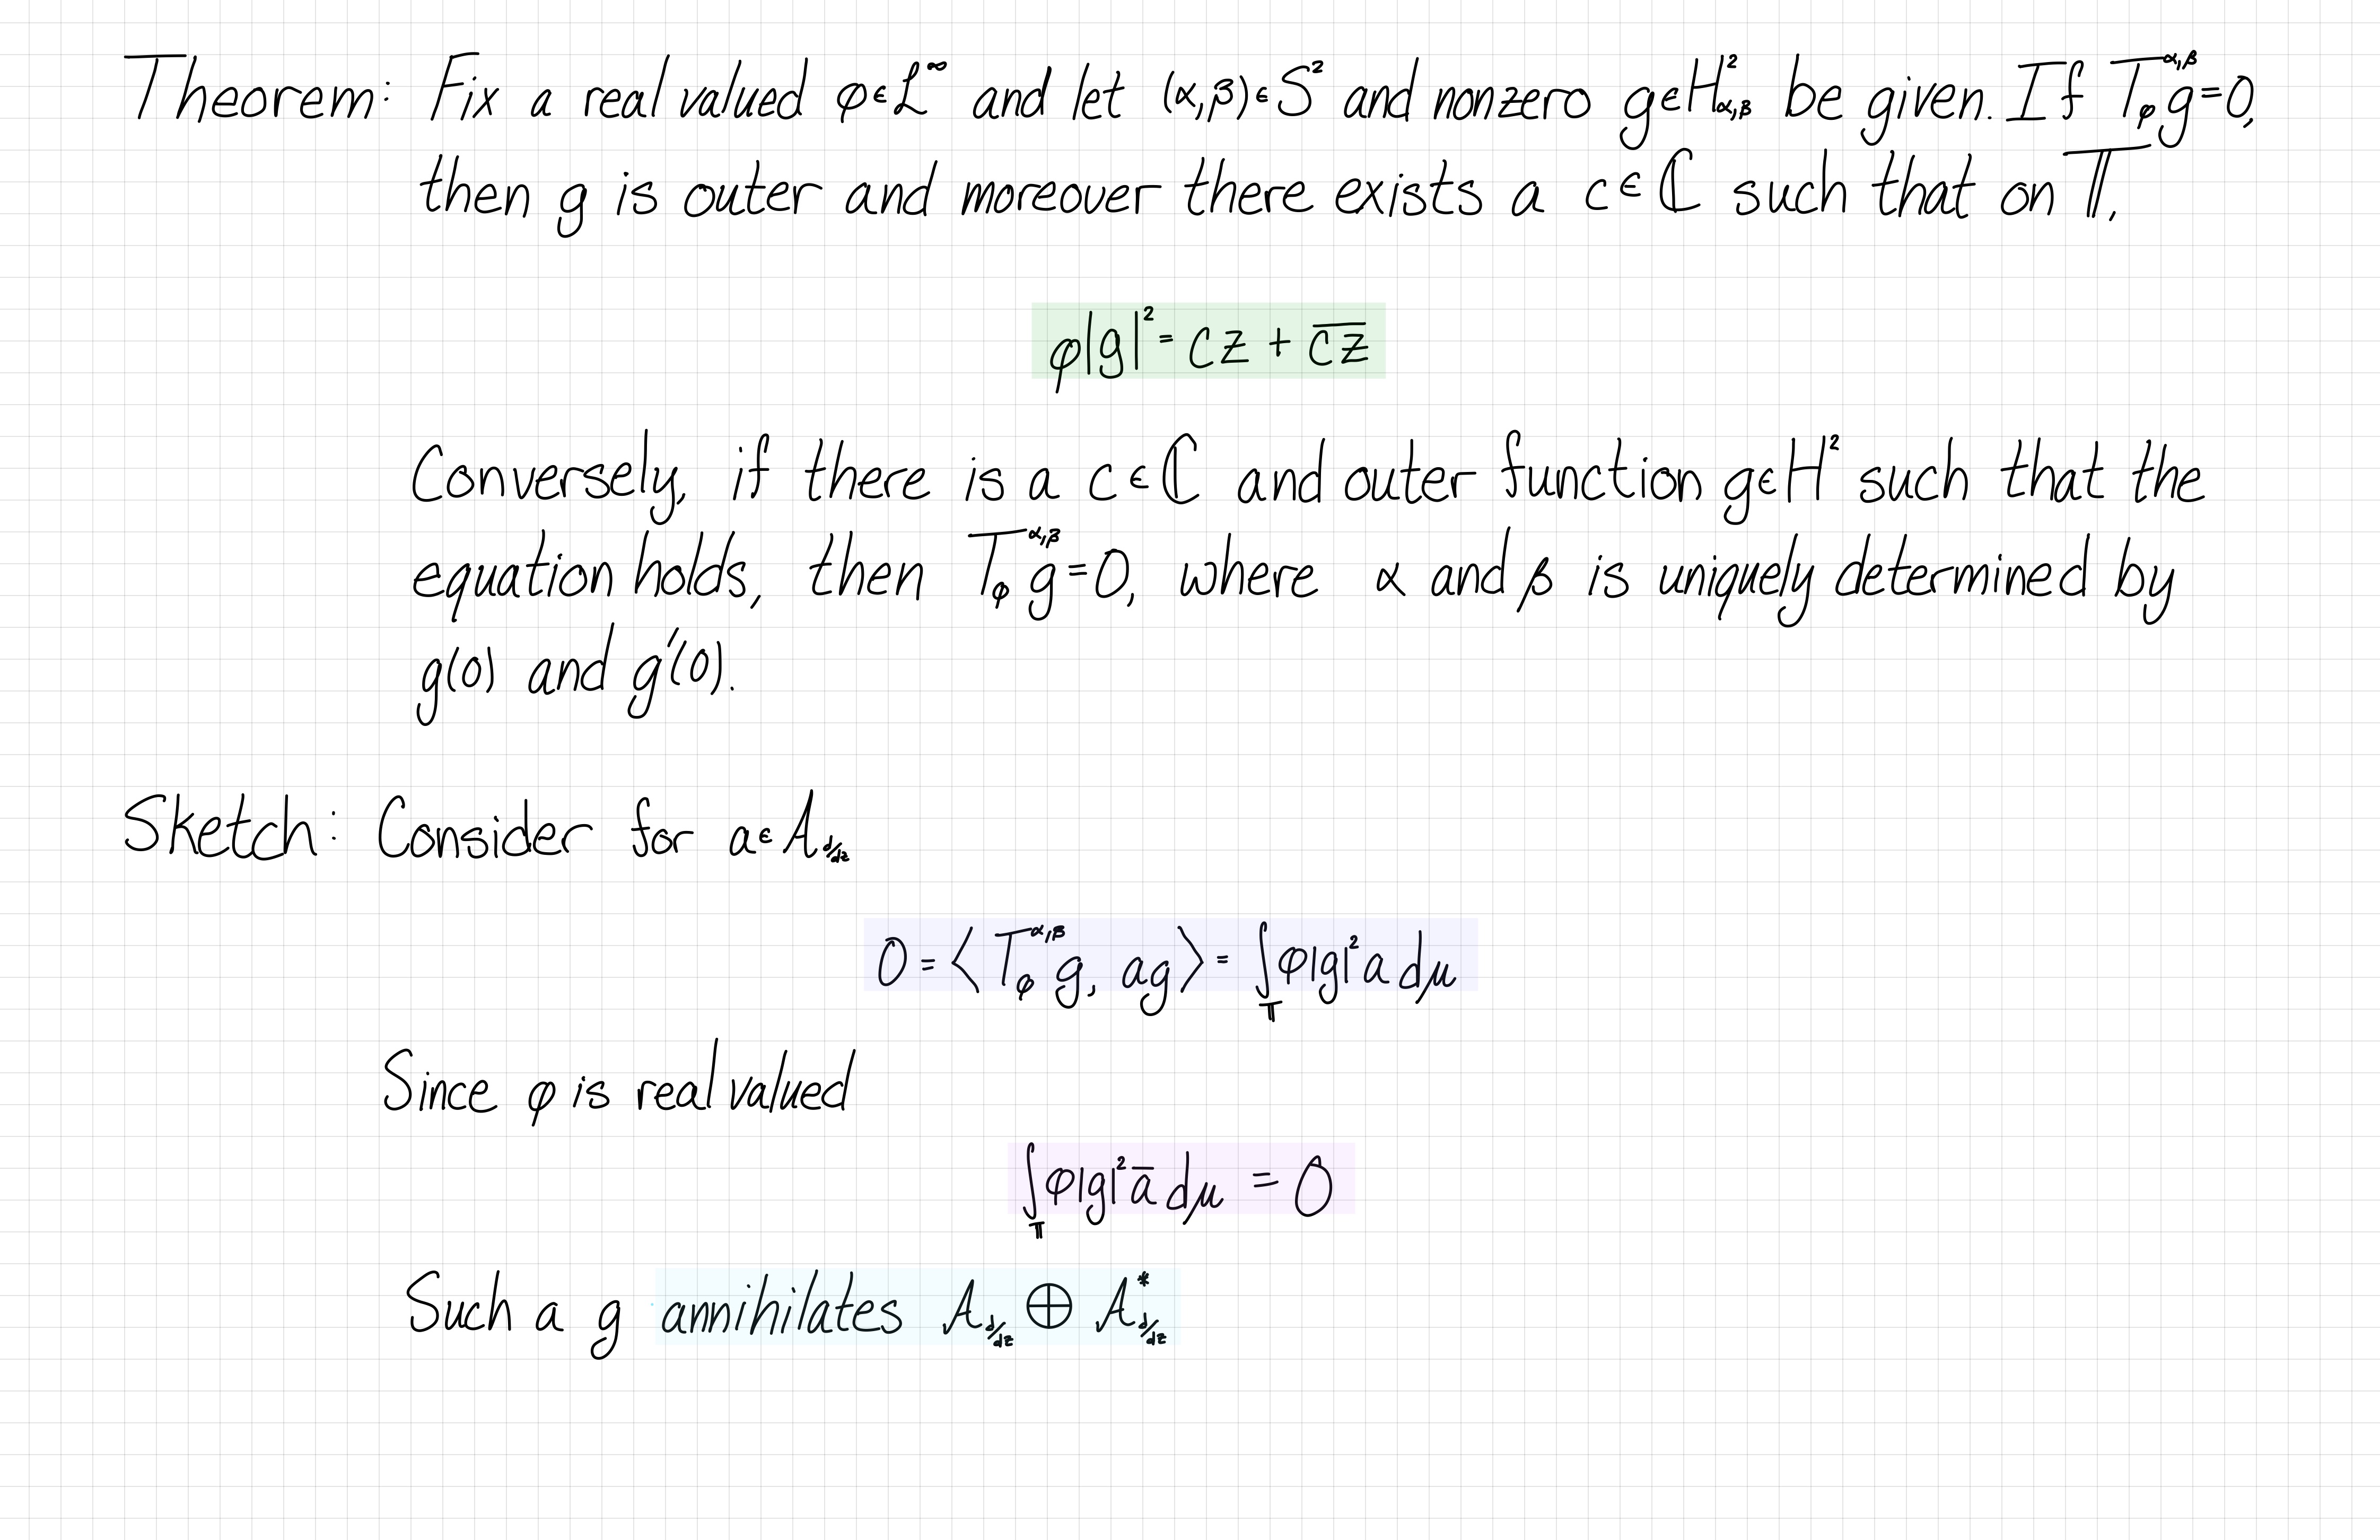 Theorem: Fix a real valued φ∈L^∞ and let (α,β)∈S² and nonzero g∈H²_{α,β} be given. If T_φ^{α,β}g=0,
then g is outer and moreover there exists a c∈ℂ such that on 𝕋,
φ|g|² = cz + \overline{cz}
Conversely, if there is a c∈ℂ and outer function g∈H² such that the
equation holds, then T_φ^{α,β}g=0, where α and β is uniquely determined by
g(0) and g'(0).
Sketch: Consider for a∈A_{d/dz}
0 = ⟨T_φ^{α,β}g, ag⟩ = ∫_𝕋 φ|g|²a dμ
Since φ is real valued
∫_𝕋 φ|g|²\overline{a} dμ = 0
Such a g annihilates A_{d/dz} ⊕ A*_{d/dz}